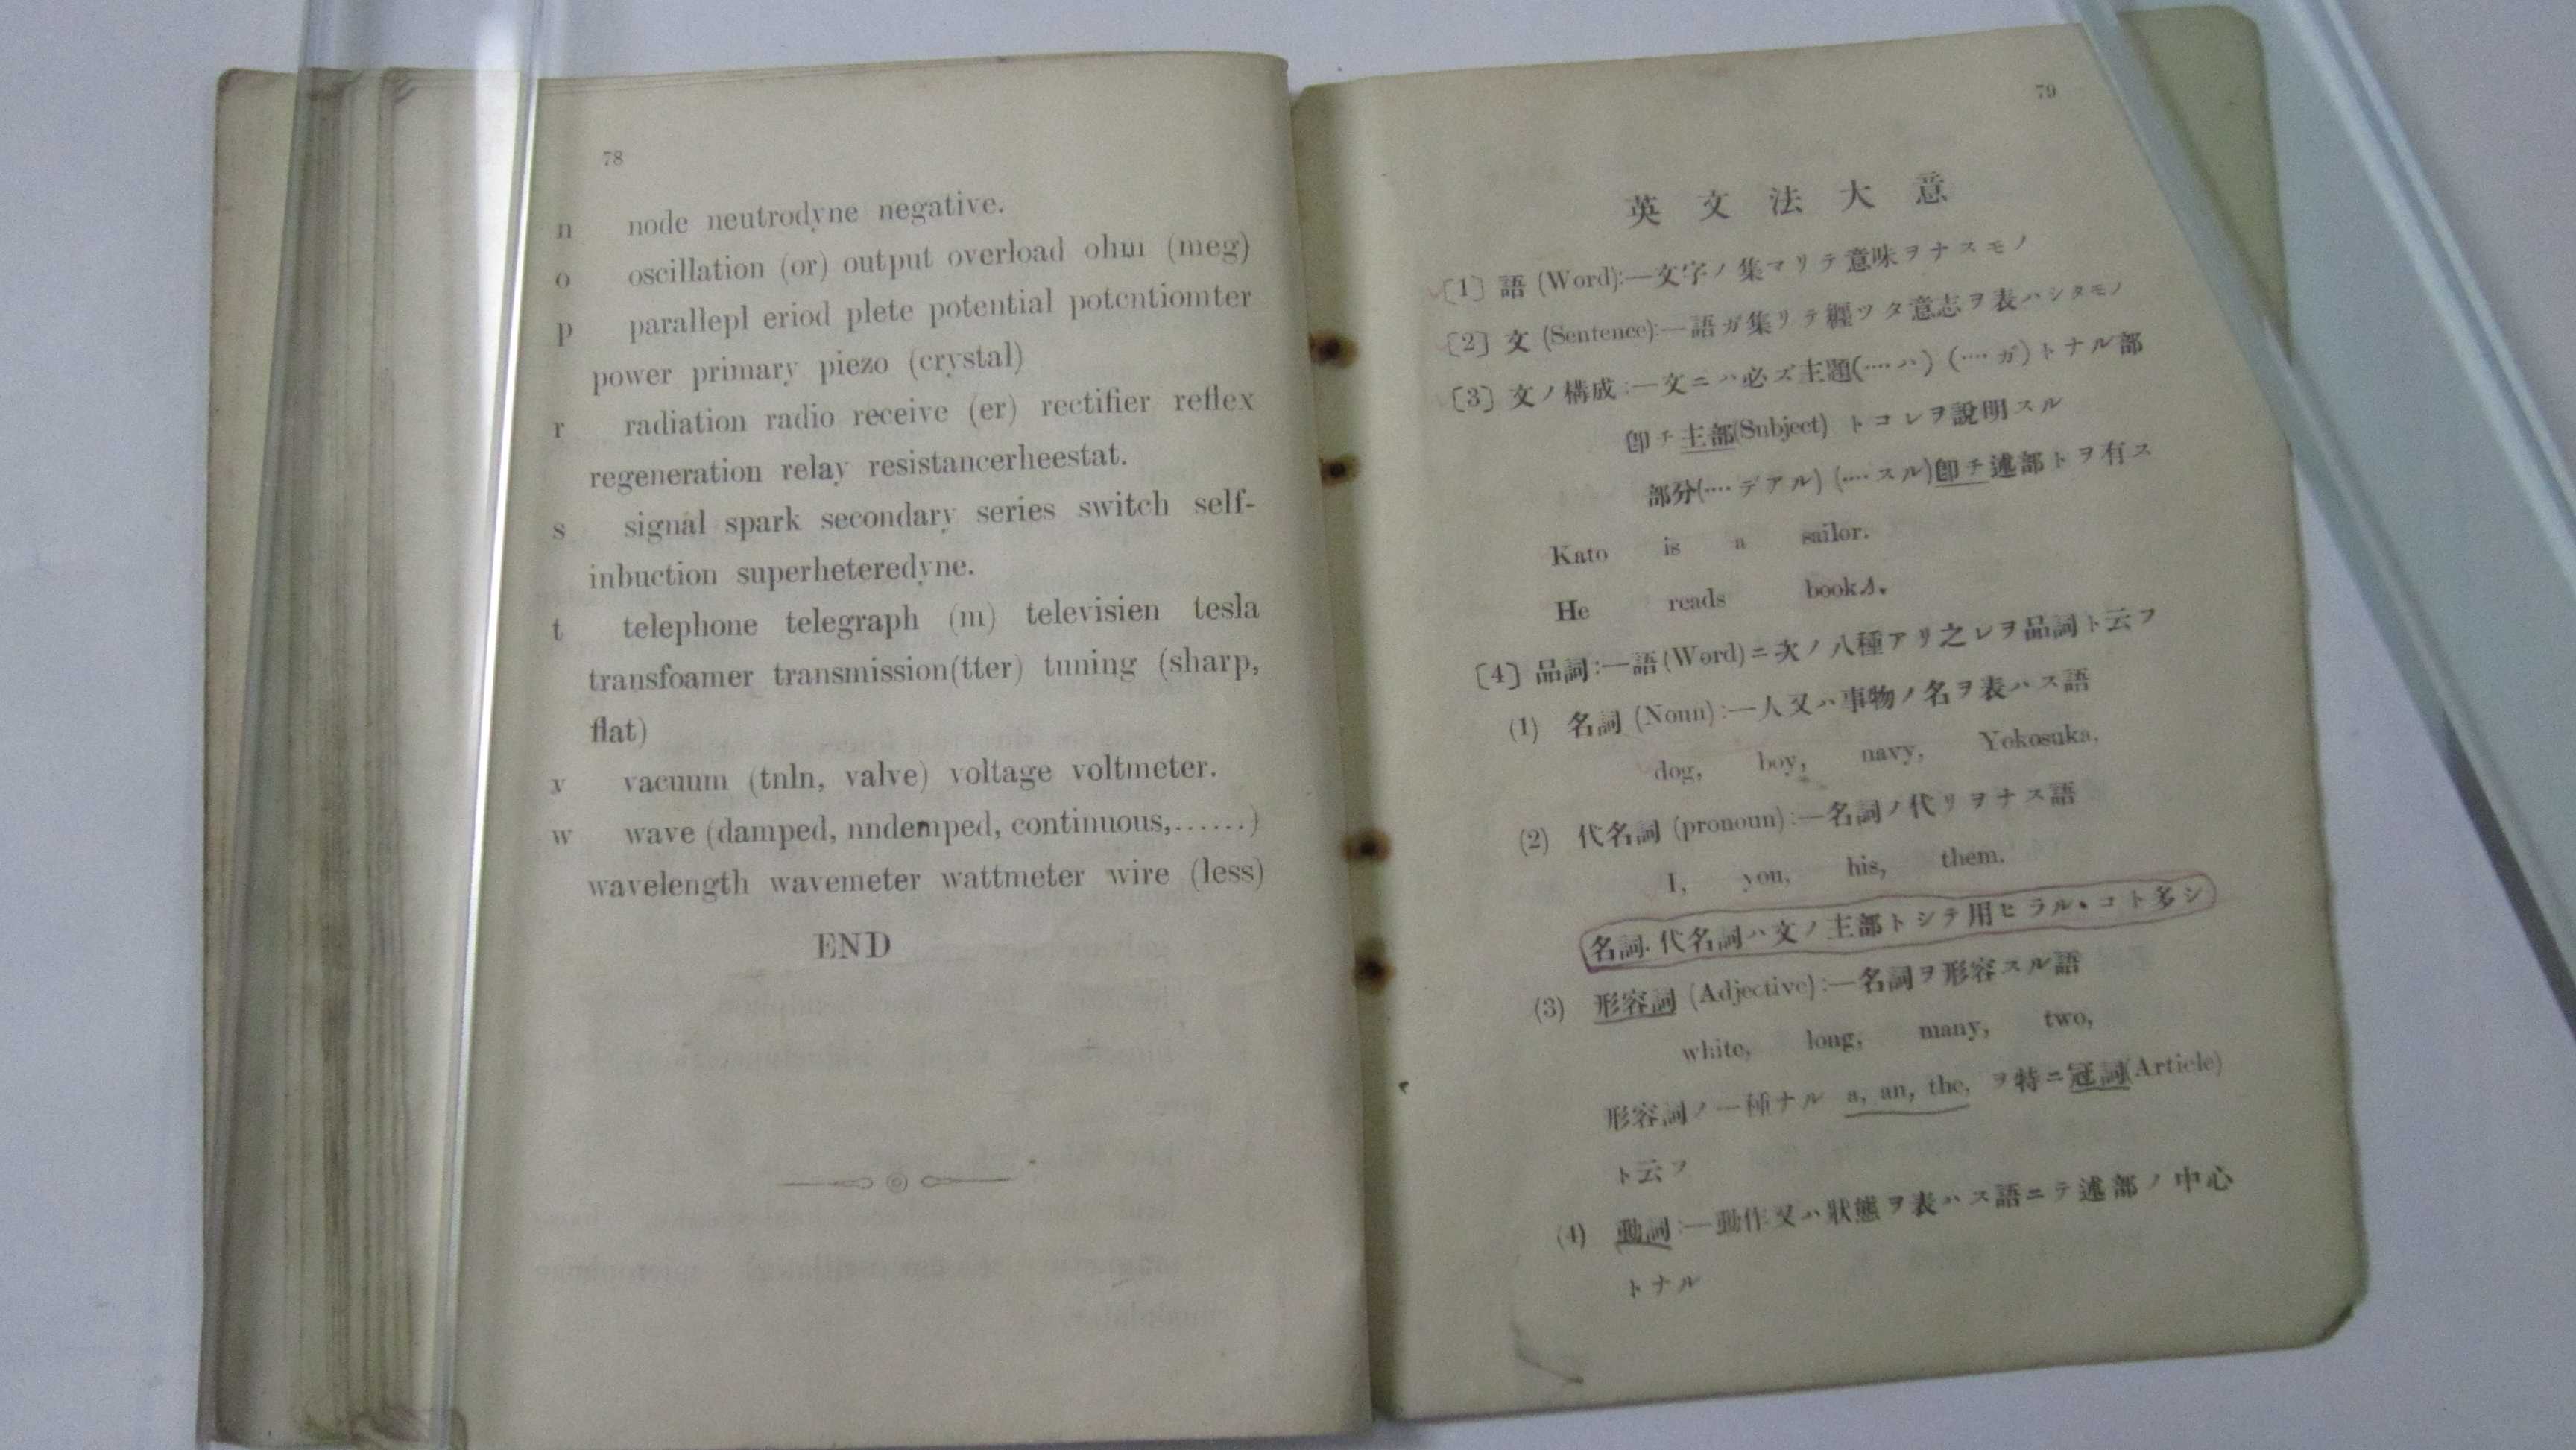 78
n node neutrodyne negative.
o oscillation (or) output overload ohm (meg)
p parallepl eriod plete potential potentiomter
power primary piezo (crystal)
r radiation radio receive (er) rectifier reflex
regeneration relay resistancerheestat.
s signal spark secondary series switch self-
inbuction superheteredyne.
t telephone telegraph (m) televisien tesla
transfoamer transmission(tter) tuning (sharp,
flat)
v vacuum (tnln, valve) voltage voltmeter.
w wave (damped, nndemped, continuous,......)
wavelength wavemeter wattmeter wire (less)
END
79
英文法大意
〔1〕 語 (Word):—文字ノ集マリテ意味ヲナスモノ
〔2〕 文 (Sentence):—語ガ集リテ纒ツタ意志ヲ表ハシタモノ
〔3〕 文ノ構成:—文ニハ必ズ主題(‥‥ハ) (‥‥ガ)トナル部
卽チ主部(Subject) トコレヲ說明スル
部分(‥‥デアル) (‥‥スル)卽チ述部トヲ有ス
Kato is a sailor.
He reads books.
〔4〕 品詞:—語(Word)ニ次ノ八種アリ之レヲ品詞ト云フ
(1) 名詞 (Noun):—人又ハ事物ノ名ヲ表ハス語
dog, boy, navy, Yokosuka.
(2) 代名詞 (pronoun):—名詞ノ代リヲナス語
I, you, his, them.
名詞.代名詞ハ文ノ主部トシテ用ヒラル・コト多シ
(3) 形容詞 (Adjective):—名詞ヲ形容スル語
white, long, many, two,
形容詞ノ一種ナル a, an, the, ヲ特ニ冠詞(Article)
ト云フ
(4) 動詞:—動作又ハ狀態ヲ表ハス語ニテ述部ノ中心
トナル